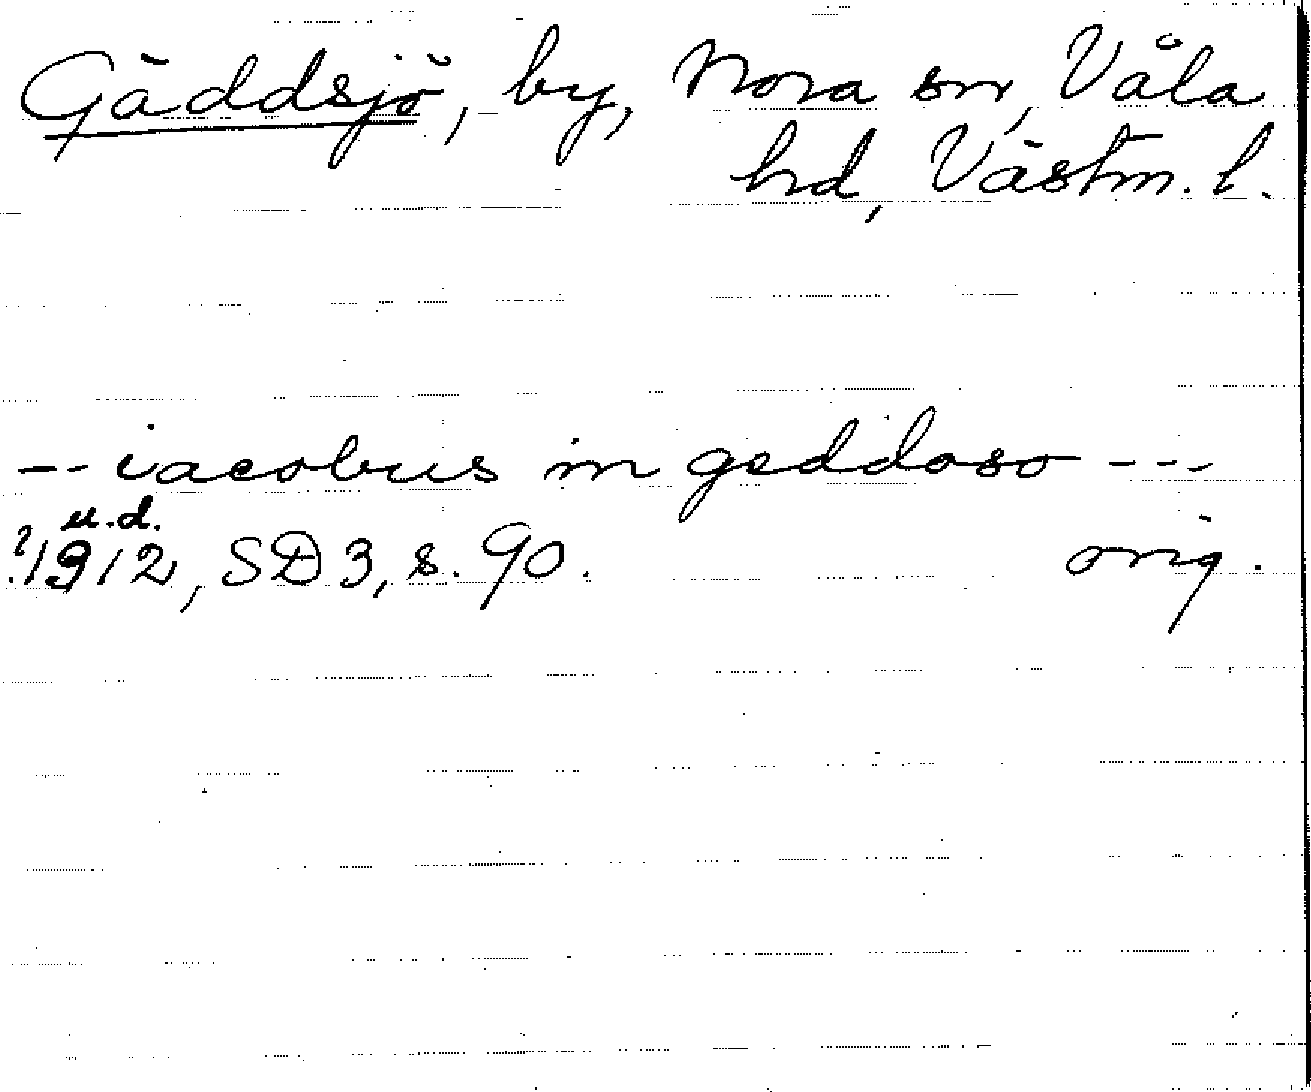 Gäddsjö, by, Nora sn, Våla
hd, Västm. l.
-- iacobus in geddoso ---
u.d.
?1312, SD 3, s. 90. orig.